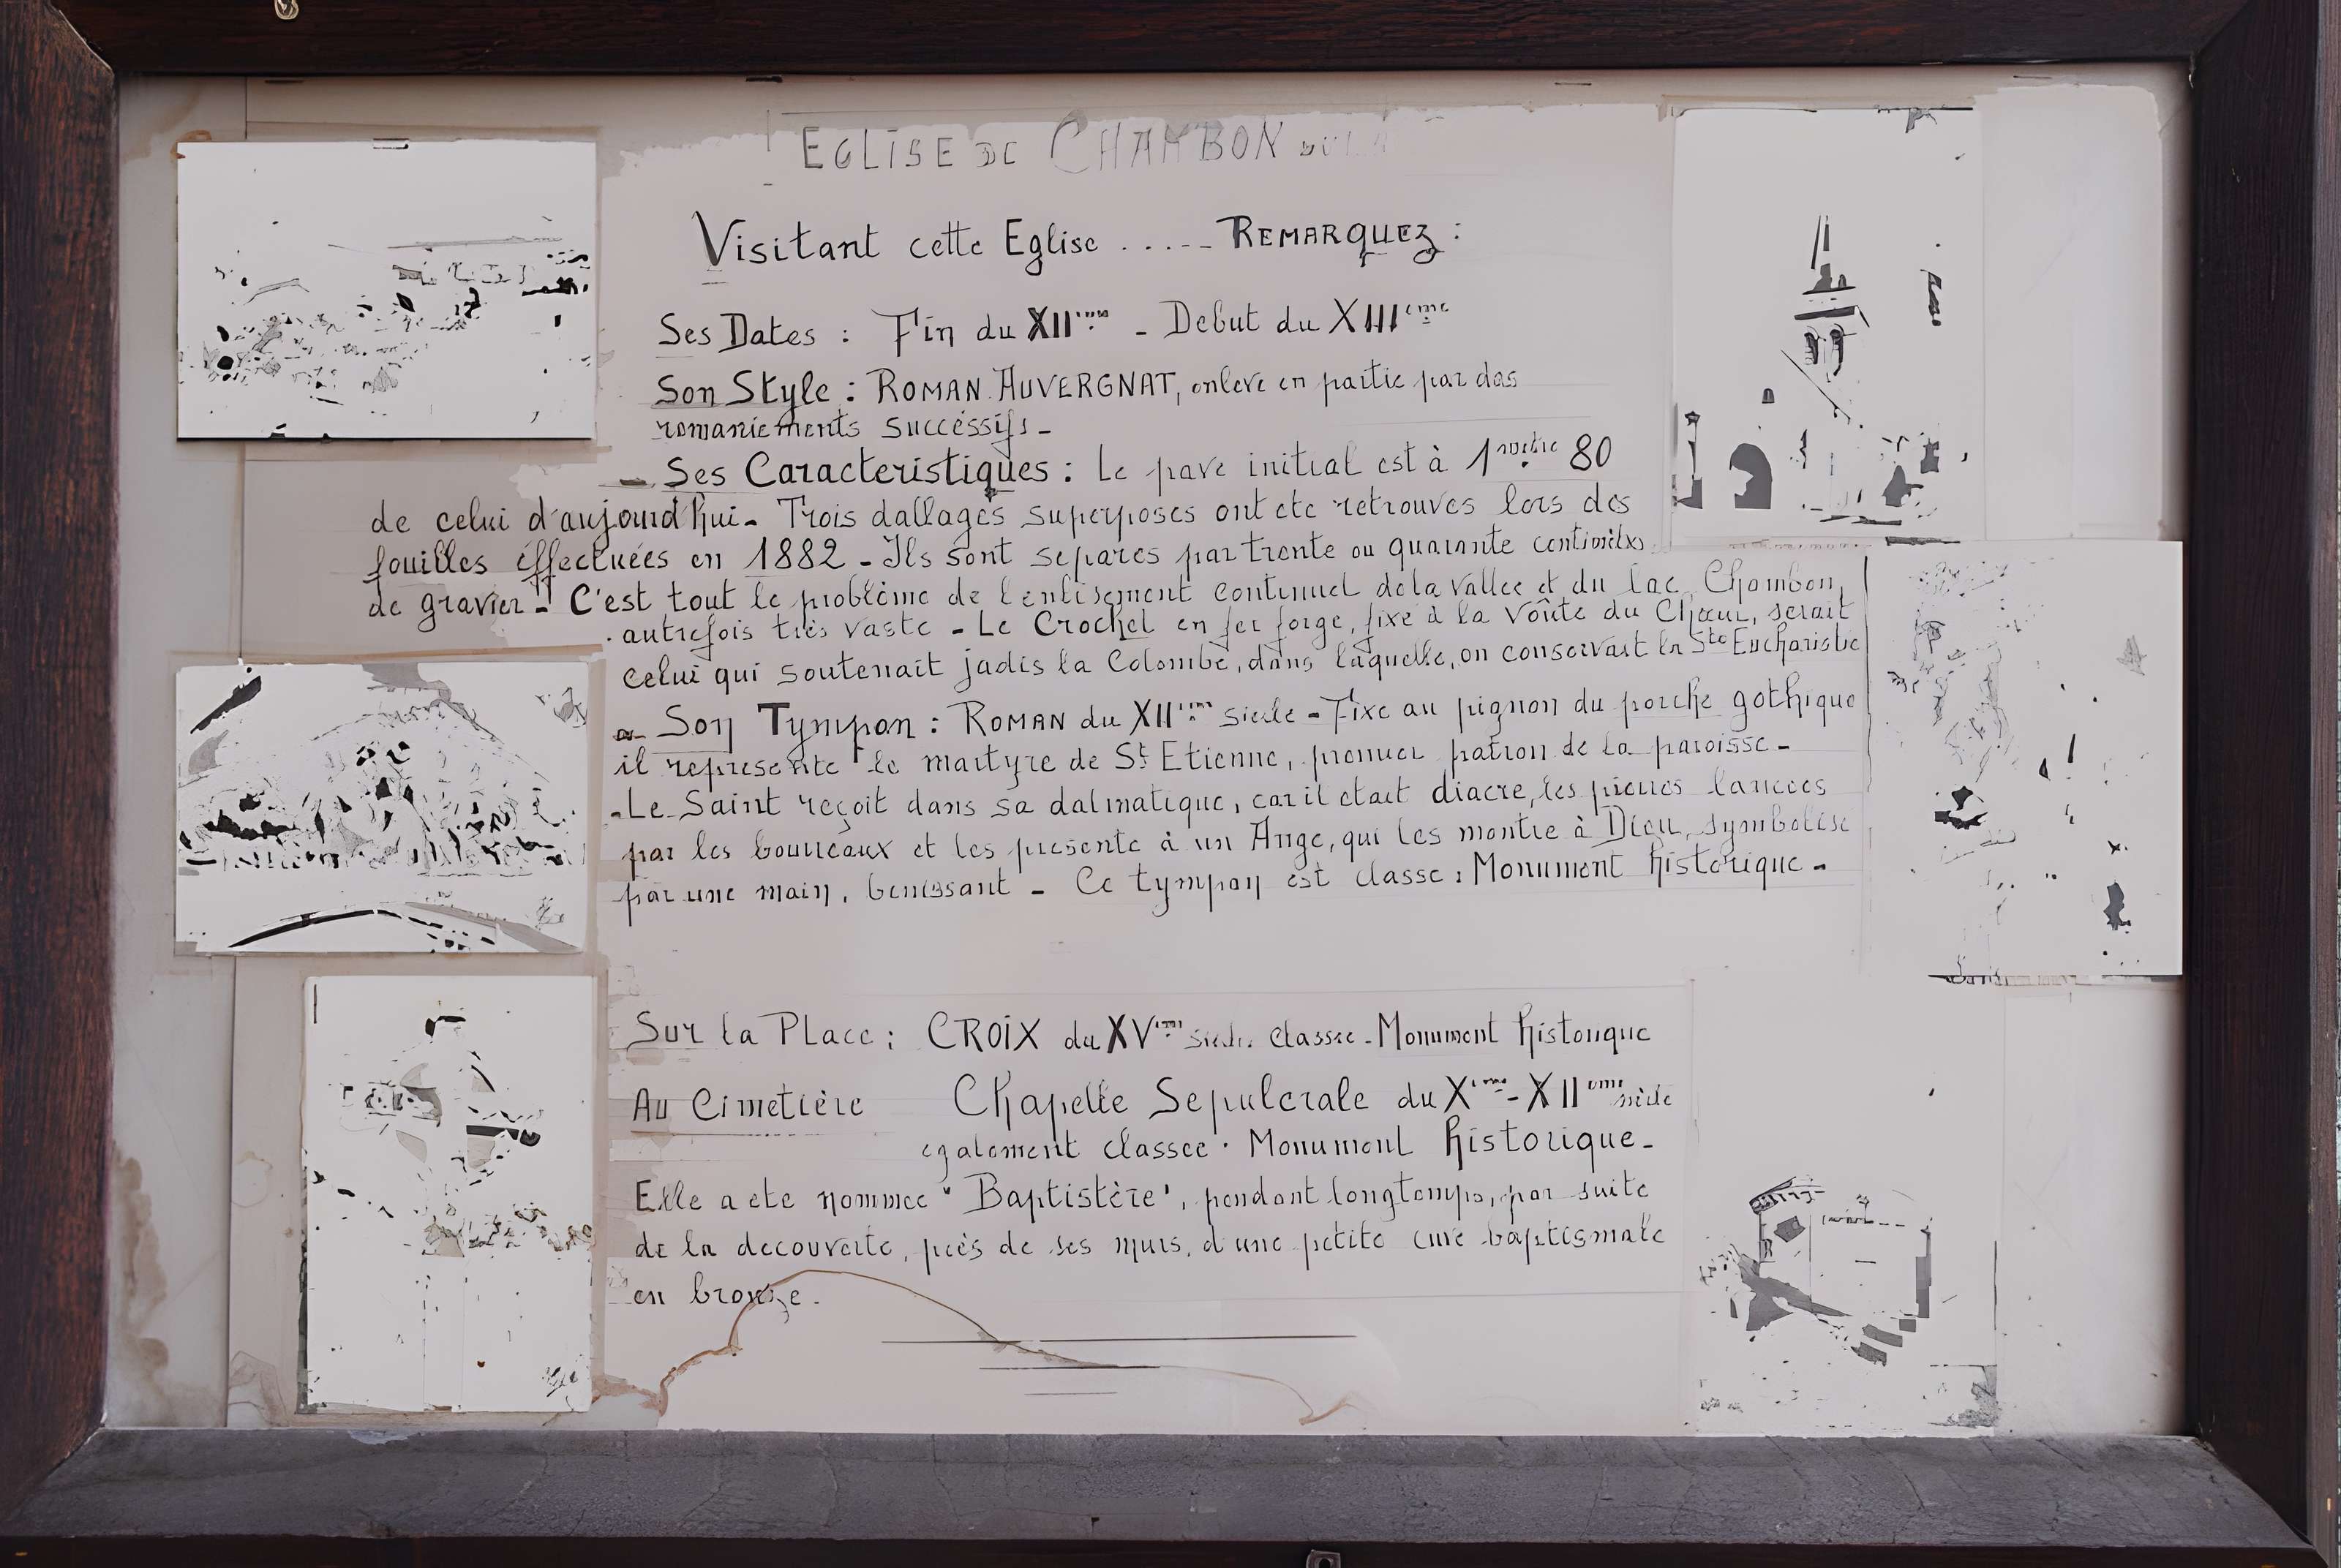 EGLISE DE CHAMBON
Visitant cette Eglise ..... REMARQUEZ :
Ses Dates : Fin du XIIème - Debut du XIIIème
Son Style : ROMAN AUVERGNAT, enlevé en partie par des
remaniements successifs -
Ses Caracteristiques : Le pavé initial est à 1 mètre 80
de celui d'aujourd'hui - Trois dallages superposés ont été retrouvés lors des
fouilles éffectuées en 1882 - Ils sont séparés par trente ou quarante
de gravier - C'est tout le problème de l'enlisement continuel de la vallée et du lac Chambon,
autrefois très vaste - Le Crochet en fer forgé, fixé à la voûte du Chœur, serait
celui qui soutenait jadis la Colombe, dans laquelle, on conservait la Ste Eucharistie
Son Tympan : ROMAN du XIIème siècle - Fixé au pignon du porche gothique
il représente le martyre de St Etienne, premier patron de la paroisse -
- Le Saint reçoit dans sa dalmatique, car il était diacre, les pierres lancées
par les bourreaux et les présente à un Ange, qui les montre à Dieu, symbolisé
par une main, bénissant - Ce tympan est classé : Monument historique -
Sur la Place : CROIX du XVème siècle classée - Monument historique
Au Cimetière Chapelle Sépulcrale du Xème - XIIème siècle
également classée · Monument historique -
Elle a été nommée "Baptistère", pendant longtemps, par suite
de la découverte, près de ses murs, d'une petite cuve baptismale
en bronze.